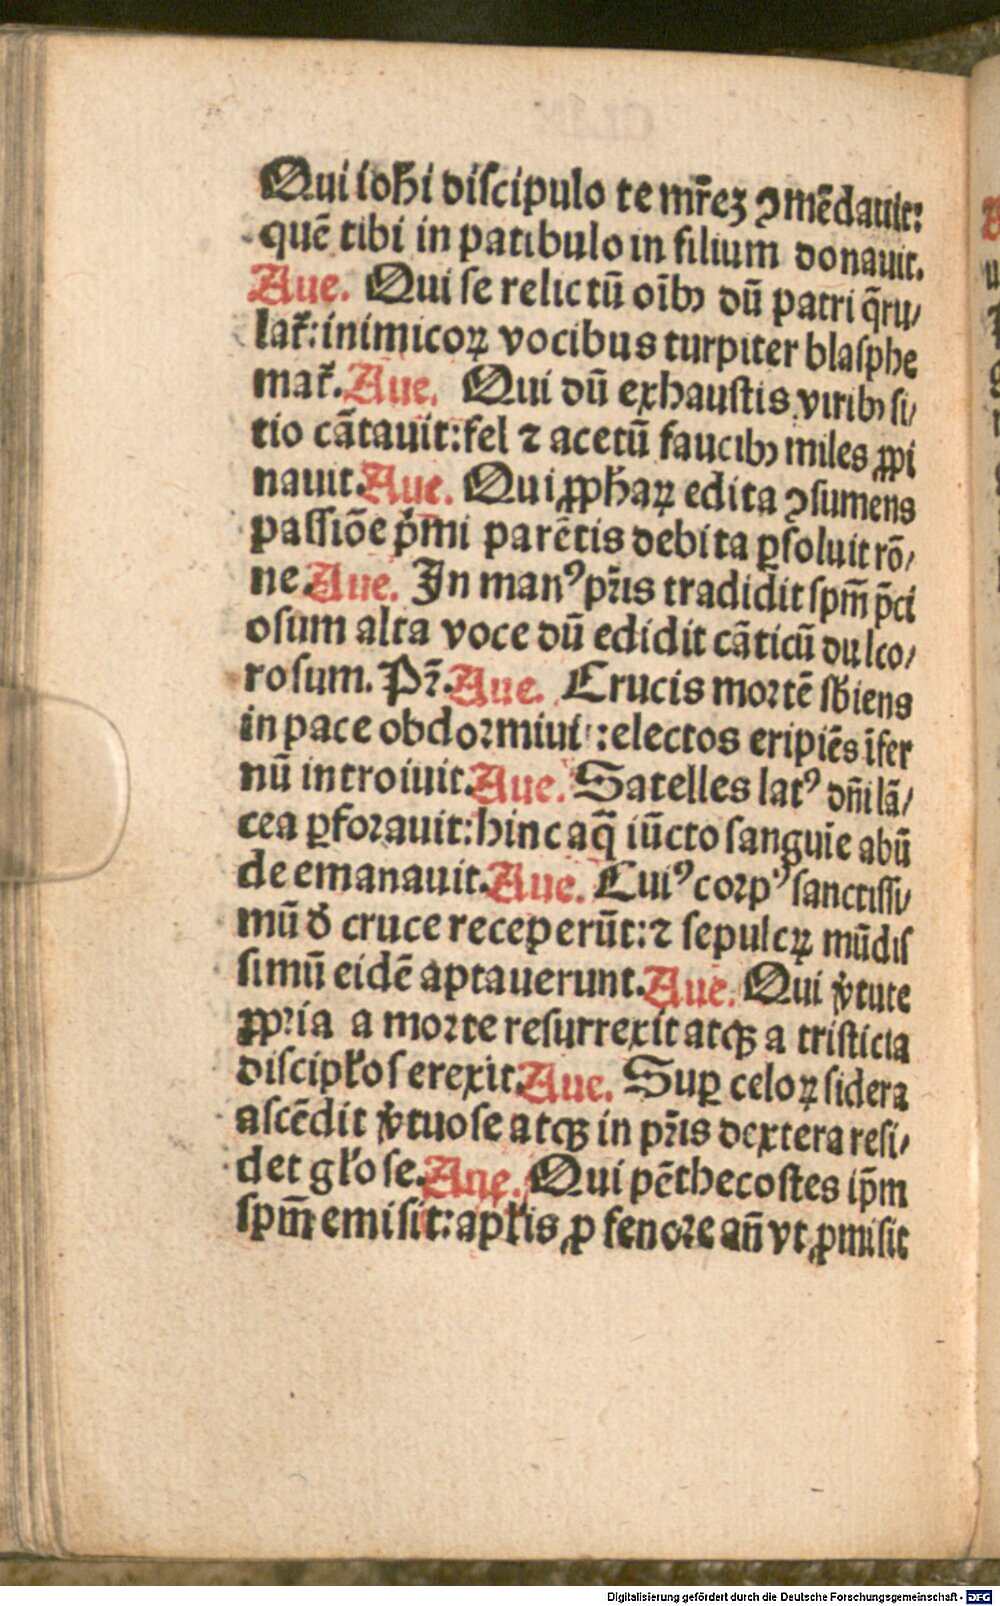 Qui ioh̅i discipulo te mr̄eꝫ ꝯmēdauit:
quē tibi in patibulo in filium donauit.
Aue. Qui se relictū oīb9 dū patri q̄ru/
lat̄: inimicoꝝ vocibus turpiter blasphe
mat̄. Aue. Qui dū exhaustis virib9 si/
tio cātauit: fel ⁊ acetū faucib9 miles ꝓpi
nauit. Aue. Qui ꝓph̅aꝝ edita ꝯsumens
passiōe p̍mi parētis debita ꝑsoluit rō/
ne. Aue. In manꝰ pr̄is tradidit spm̄ p̄ci
osum alta voce dū edidit cāticū dulco/
rosum. Pr̄. Aue. Crucis mortē sb̄iens
in pace obdormiui :electos eripiēs īfer
nū introiuit. Aue. Satelles latꝰ dn̄i lā/
cea ꝑforauit: hinc aq̄ iūcto sanguīe abū
de emanauit. Aue. Cuiꝰ corpꝰ sanctissi/
mū đ cruce receperūt: ⁊ sepulcꝝ mūdis
simū eidē aptauerunt. Aue. Qui v̍tute
ꝓpria a morte resurrexit atqꝫ a tristicia
discipłos erexit. Aue. Suꝑ celoꝝ sidera
ascēdit v̍tuose atqꝫ in pr̄is dextera resi/
det głose. Aue. Qui pēthecostes ip̄m
spm̄ emisit: apłis ꝓ fenore an̄ vt ꝓmisit
Digitalisierung gefördert durch die Deutsche Forschungsgemeinschaft - DFG